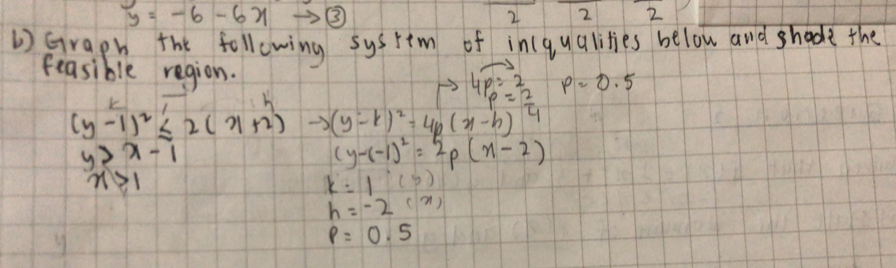 y = -6 - 6x → ③
2 2 2
b) Graph the following system of inequalities below and shade the
feasible region.
→ 4p = 2 p = 0.5
p = 2/4
k h
(y - 1)² ≤ 2(x + 2) → (y - k)² = 4p(x - h)
y > x - 1 (y - (-1)² = 2p(x - 2)
x > 1
k = 1 (y)
h = -2 (x)
p = 0.5